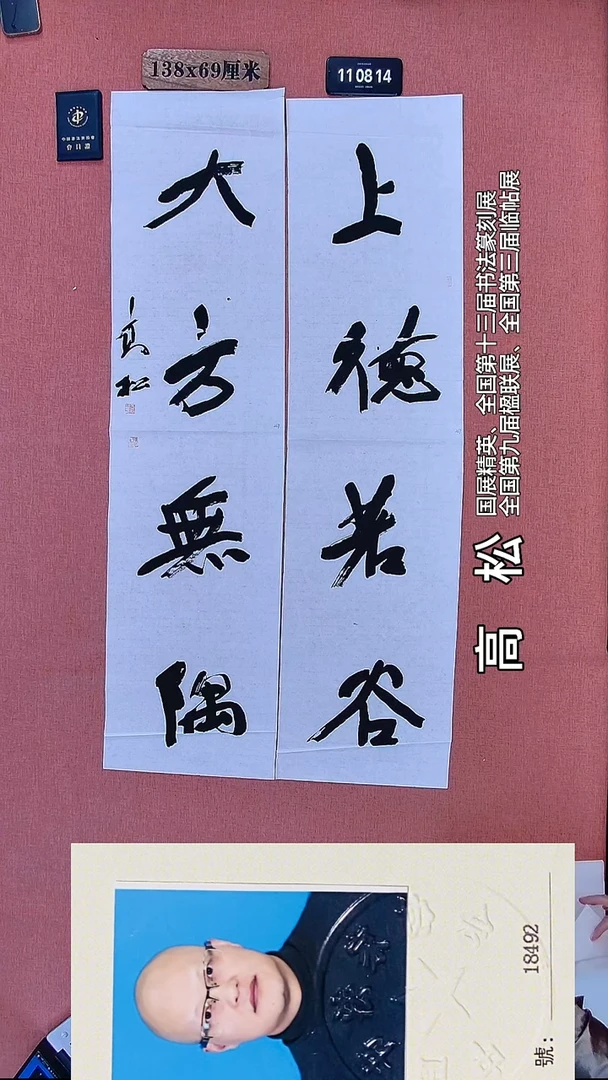 138x69厘米
11 08 14
上德若谷
大方無隅
高松
国展精英、全国第十三届书法篆刻展
全国第九届楹联展、全国第三届临帖展
高 松
號：
18492